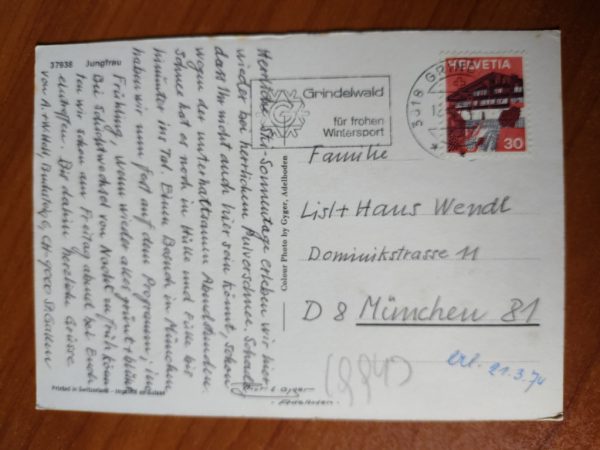 37938 Jungfrau
Herrliche Ski-Sonnentage erleben wir hier
wieder bei herrlichem Pulverschnee. Schade
dass Ihr nicht auch hier sein könnt, schon
wegen der unterhaltsamen Abendstunden.
Schnee hat es noch in Hülle und Fülle bis
hinunter ins Tal. Einen Besuch in München
haben wir nun fest auf dem Programm; im
Frühling, wenn wieder alles grünt + blüht
Die Schichtwechsel von Nacht in Früh könn
ten wir schon am Freitag abend bei Euch
eintreffen. Bis dahin herzliche Grüsse
von
CH-9000 St. Gallen
Printed in Switzerland
Colour Photo by Gyger, Adelboden
Gyger
Adelboden
Grindelwald
für frohen
Wintersport
3818 GRINDEL
HELVETIA
30
Familie
Lisl + Hans Wendl
Dominikstrasse 11
D 8 München 81
erl. 21.3.74